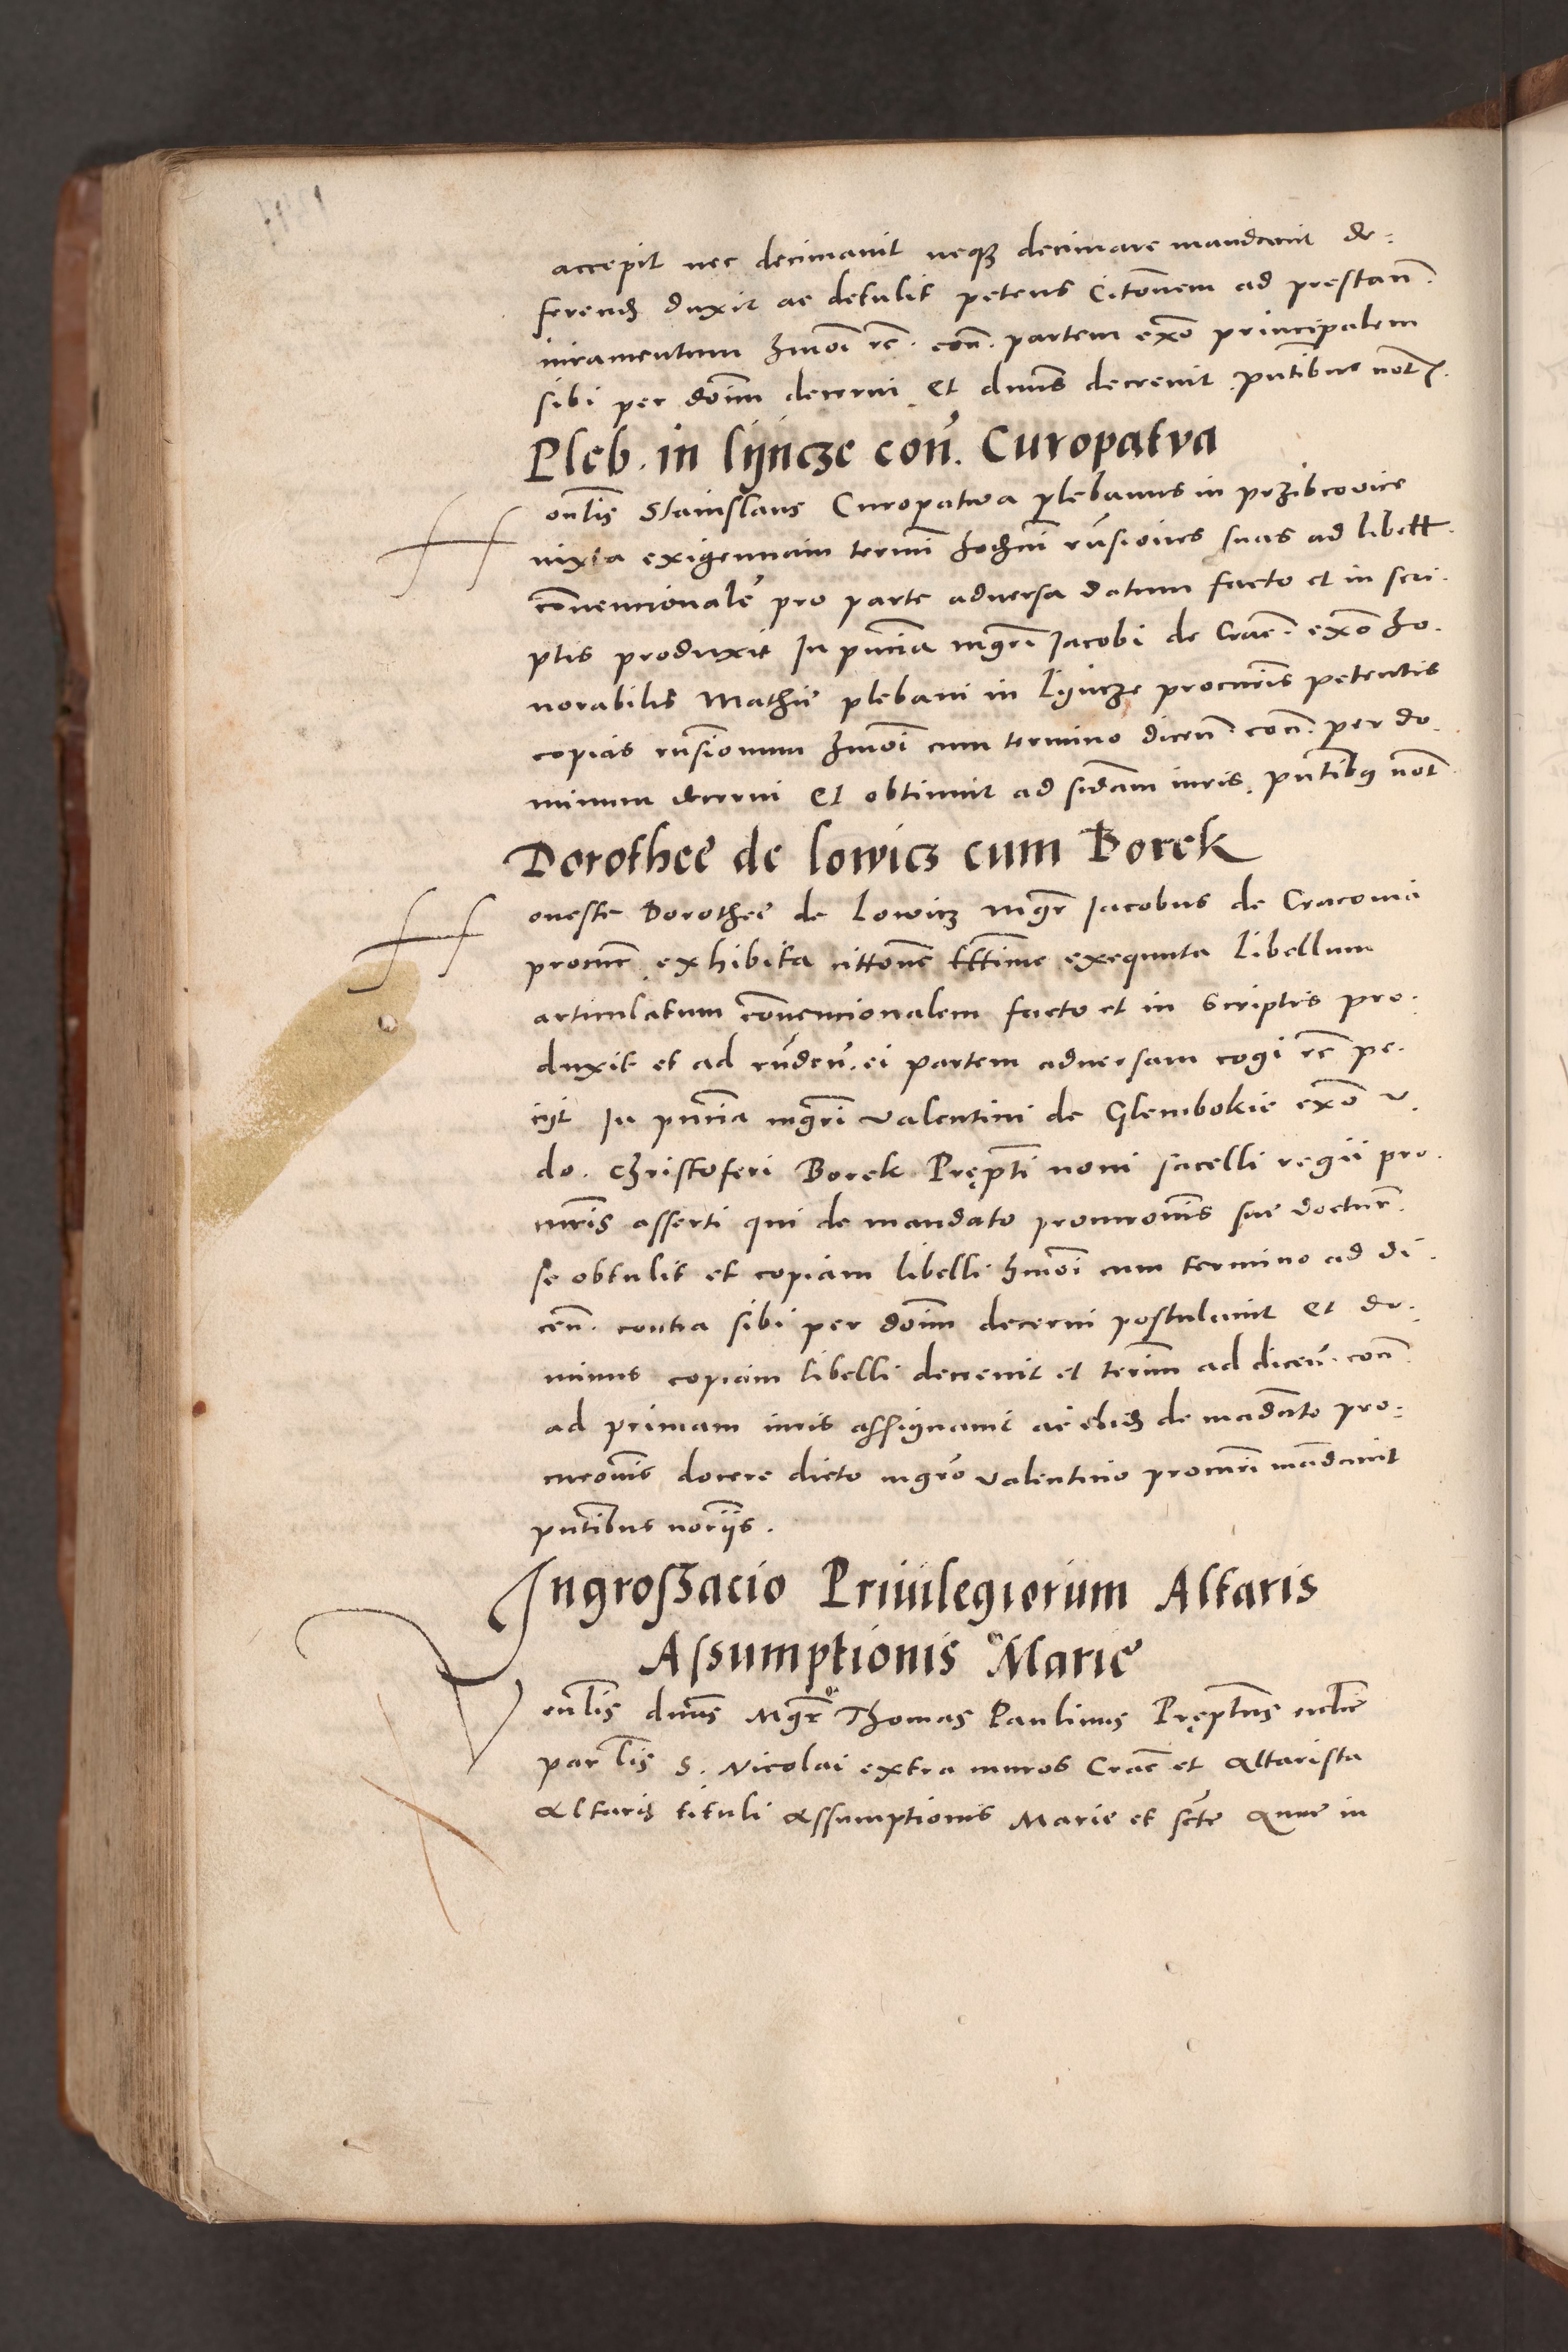 accepit nec decimavit neqȝ decimare mandavit de-
ferendȝ duxit ac detulit petens Citōnem ad prestan̄.
iuramentum hmōi rc̄. con̄. partem ex̄o principalem
sibi per dōim decerni Et dn̄us decrevit pn̄tibus not
Pleb. in lÿncze con̄. Curopatva
Hon̄lis Stanislaus Curopatwa plebanus in przibcovice
iuxta exigenciam termi hodierni rn̄siones suas ad libell
cōnencionalē pro parte adversa datum facto et in scri-
ptis produxit In pn̄cia mgr̄i Jacobi de Crac̄. ex̄o ho-
norabilis Mathie plebani in Lÿncze procur̄is petentis
copias rn̄sionum hmōi cum termino dicen̄. con̄. per do-
minum decerni Et obtinuit ad sc̄dam iuris. pn̄tibȝ not
Dorothee de lowicz cum Borek
Honeste Dorothee de Lowicz mgr̄ Jacobus de Cracovia
procur̄ exhibita cittōne ltt̄ime exequuta Libellum
articulatum cōnencionalem facto et in scriptis pro-
duxit et ad rn̄den̄. ei partem adversam cogi rc̄ pe-
ciit In pn̄cia mgr̄i Valentini de Glembokie ex̄o v.
do. Christoferi Borek Prępti noni sacelli regii pro-
cur̄is asserti qui de mandato procurōnis sue doctur̄.
se obtulit et copiam libelli hmōi cum termino ad di-
cen̄. contra sibi per dōim decerni postulavit Et do-
minus copiam libelli decrevit et term̄ ad dicen̄. con̄
ad primam iuris assignavit ac eidȝ de mādato pro-
curōnis docere dicto mgr̄o Valentino procur̄i mādavit
pn̄tibus norÿs.
Ingroszacio Privilegiorum Altaris
Assumptionis Marie
Ven̄lis dn̄us Mgr̄ Thomas Paulinus Pręptus eccl̄ie
par̄lis S. Nicolai extra muros Crac̄ et Altarista
Altaris tituli Assumptionis Marie et sc̄te Anne in